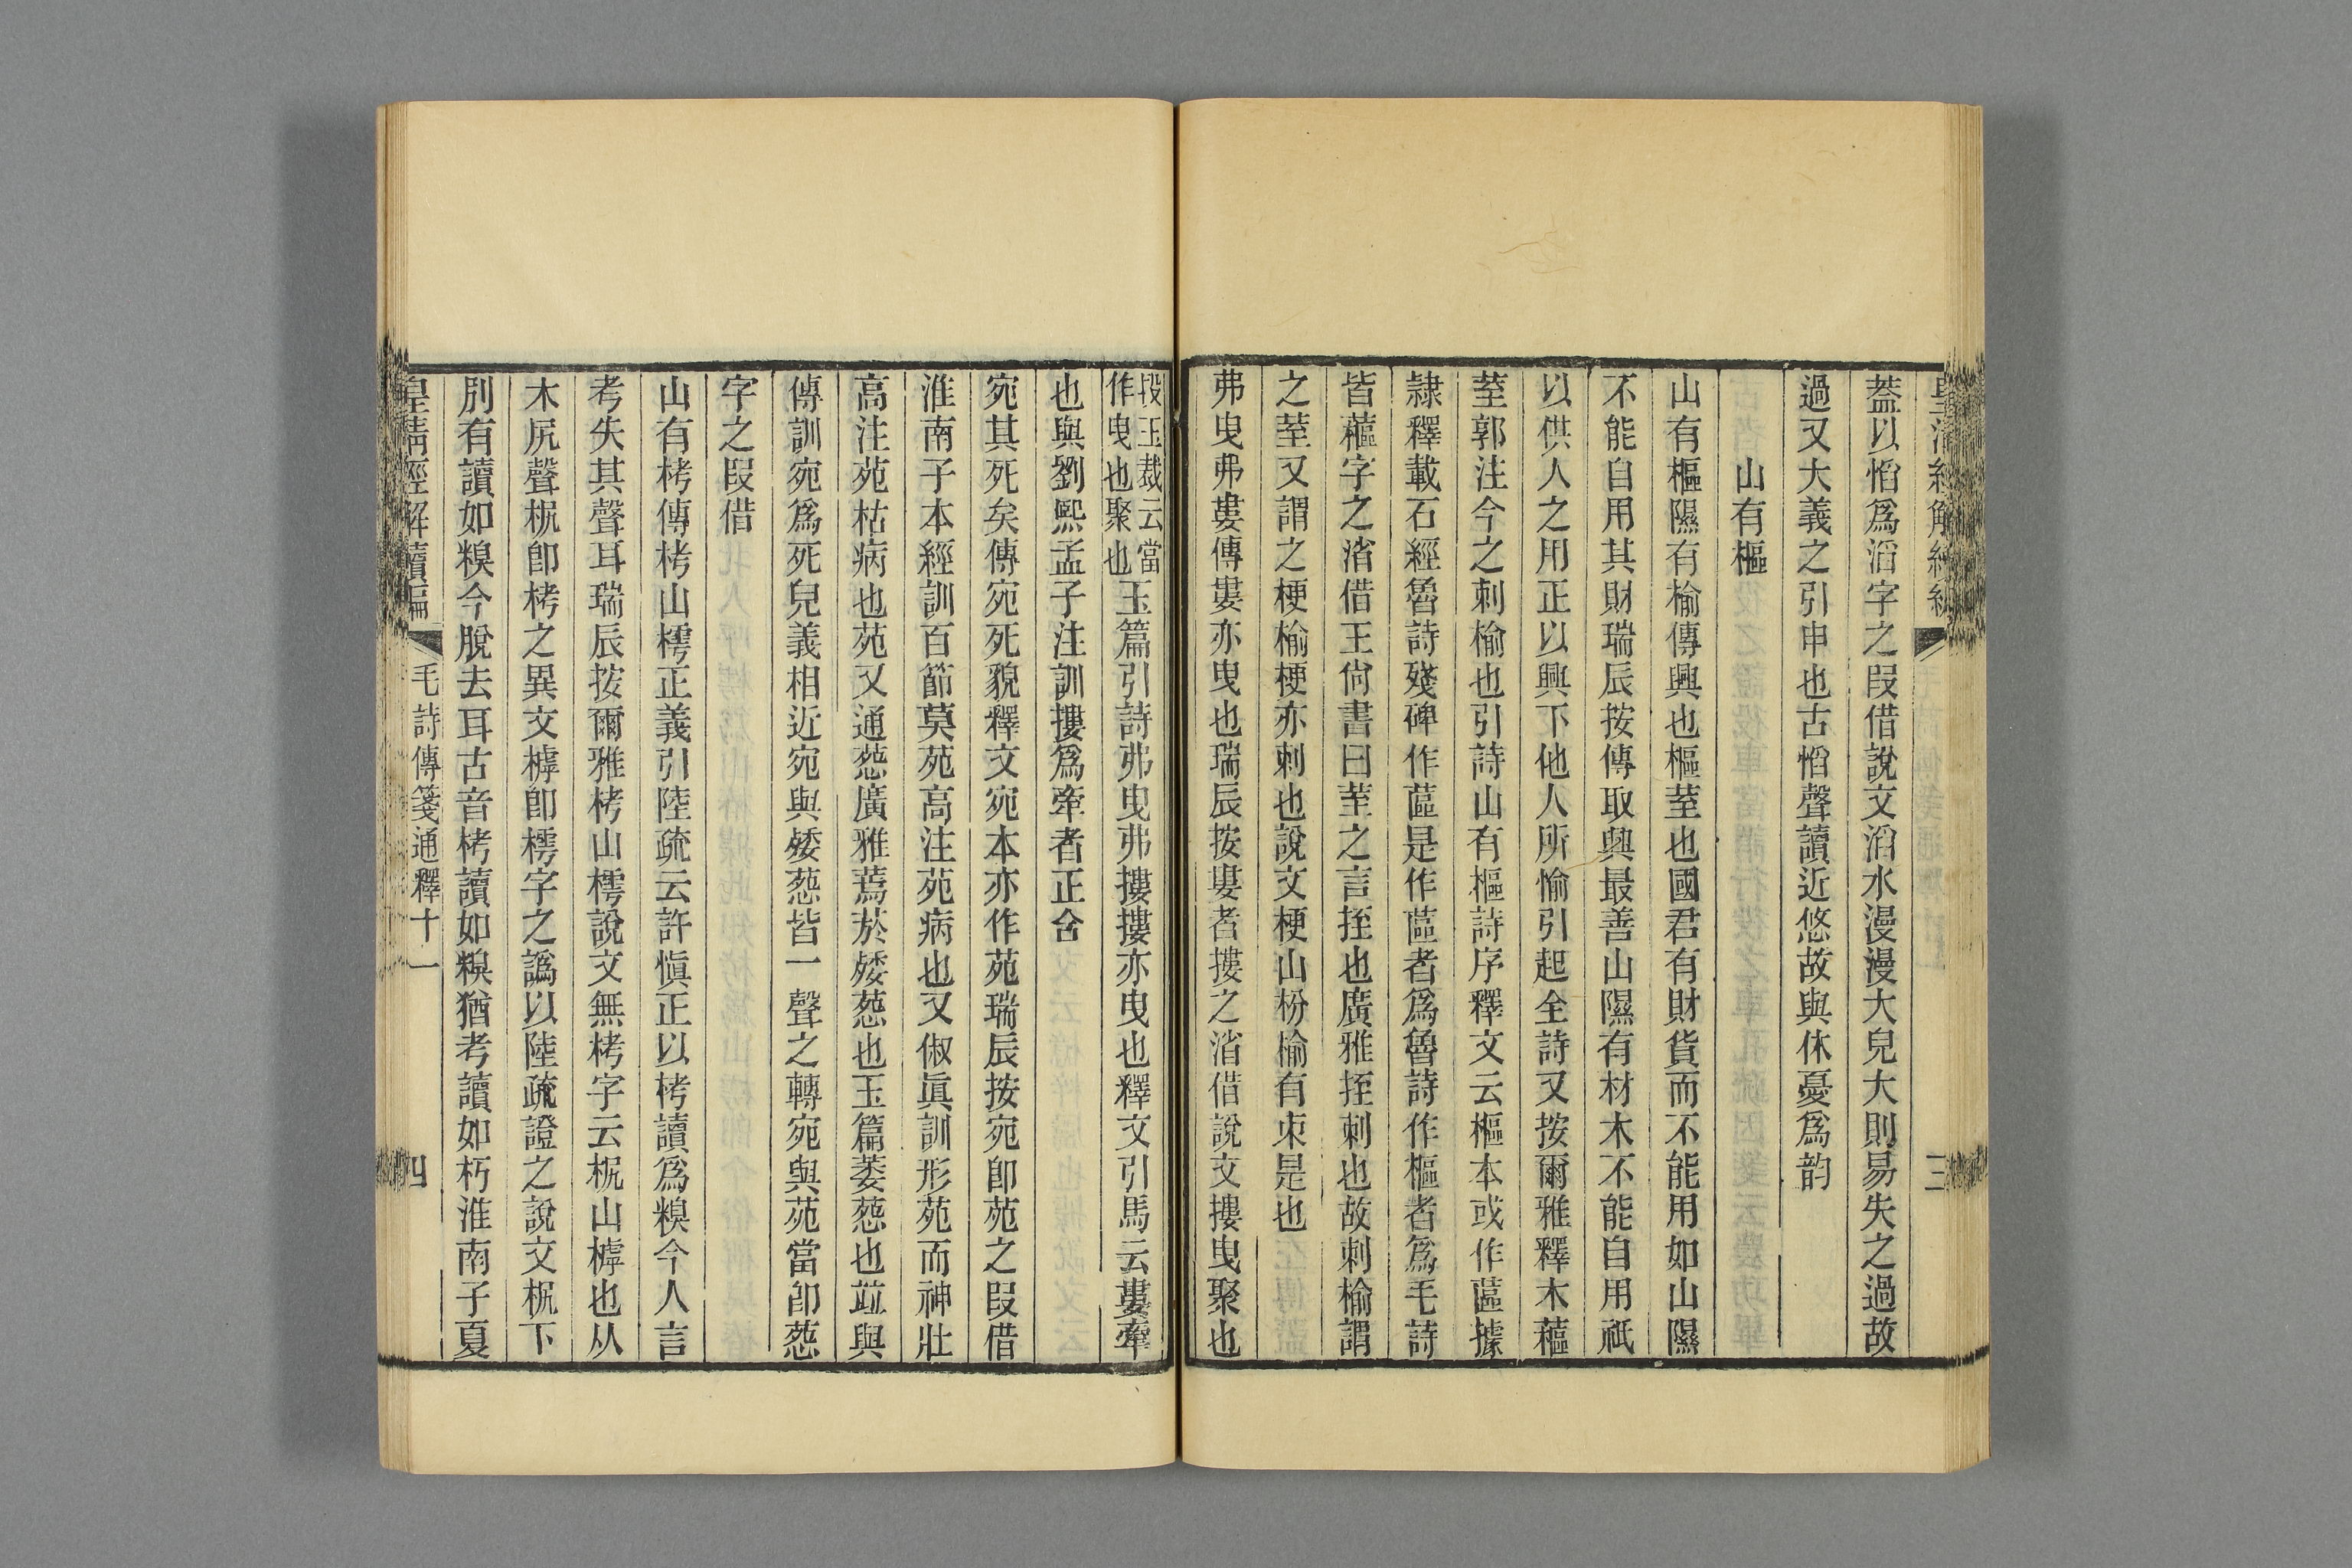 蓋以慆爲滔字之叚借說文滔水漫漫大皃大則易失之過故
過又大義之引申也古慆聲讀近悠故與休憂爲韵
山有樞
山有樞隰有榆傳興也樞荎也國君有財貨而不能用如山隰
不能自用其財瑞辰按傳取興最善山隰有材木不能自用祇
以供人之用正以興下他人所愉引起全詩又按爾雅釋木蓲
荎郭注今之刺榆也引詩山有樞詩序釋文云樞本或作蓲據
隸釋載石經魯詩殘碑作蓲是作蓲者爲魯詩作樞者爲毛詩
皆蓲字之渻借王尙書曰荎之言挃也廣雅挃刺也故刺榆謂
之荎又謂之梗榆梗亦刺也說文梗山枌榆有朿是也
弗曳弗婁傳婁亦曳也瑞辰按婁者摟之渻借說文摟曳聚也
段玉裁云當
作曳也聚也
玉篇引詩弗曳弗摟摟亦曳也釋文引馬云婁牽
也與劉熙孟子注訓摟爲牽者正合
宛其死矣傳宛死貌釋文宛本亦作苑瑞辰按宛卽苑之叚借
淮南子本經訓百節莫苑高注苑病也又俶眞訓形苑而神壯
高注苑枯病也苑又通葾廣雅蔫菸矮葾也玉篇萎葾也竝與
傳訓宛爲死皃義相近宛與矮葾皆一聲之轉宛與苑當卽葾
字之叚借
山有栲傳栲山樗正義引陸疏云許愼正以栲讀爲糗今人言
考失其聲耳瑞辰按爾雅栲山樗說文無栲字云㭒山樗也从
木尻聲㭒卽栲之異文樗卽樗字之譌以陸疏證之說文㭒下
別有讀如糗今脫去耳古音栲讀如糗猶考讀如朽淮南子夏
皇淸經解續編
毛詩傳箋通釋十一
四